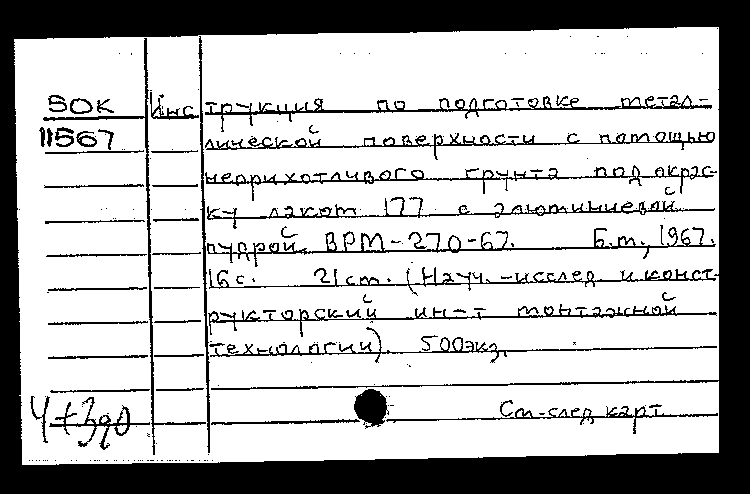 50К Инс трукция по подготовке метал-
11567 лической поверхности с помощью
неприхотливого грунта под окрас-
ку лаком 177 с алюминиевой
пудрой. ВРМ-270-67. Б.м., 1967.
16с. 21 см. (Науч.-исслед. и конст-
рукторский ин-т монтажной
технологии). 500экз.
См. след карт